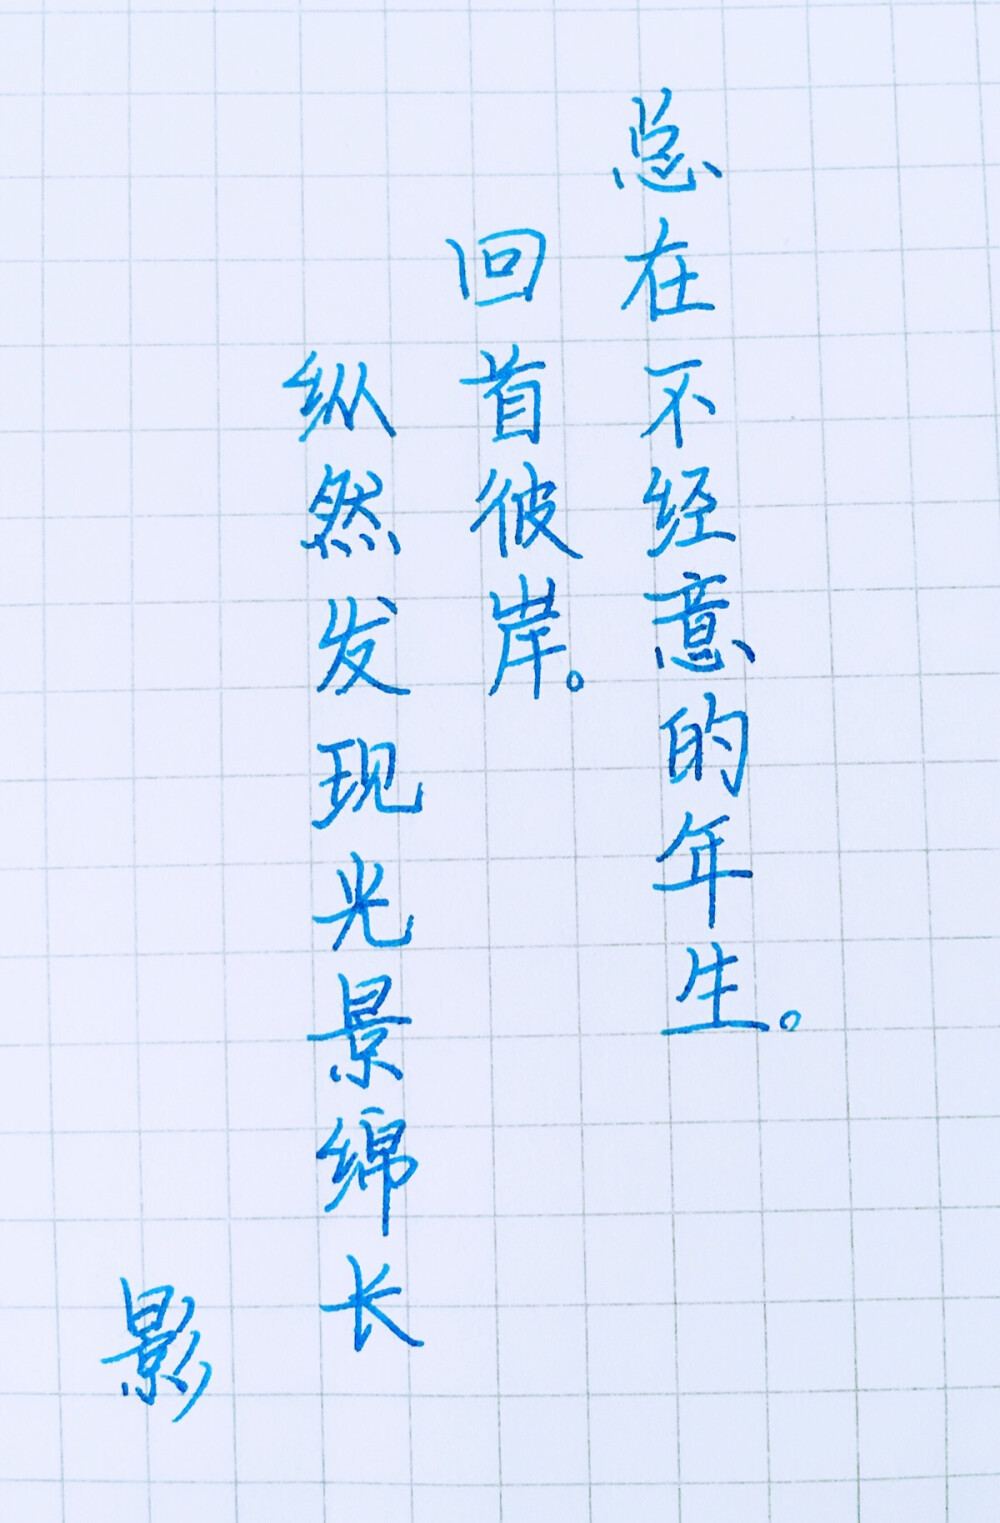 总在不经意的年生。
回首彼岸。
纵然发现光景绵长
影